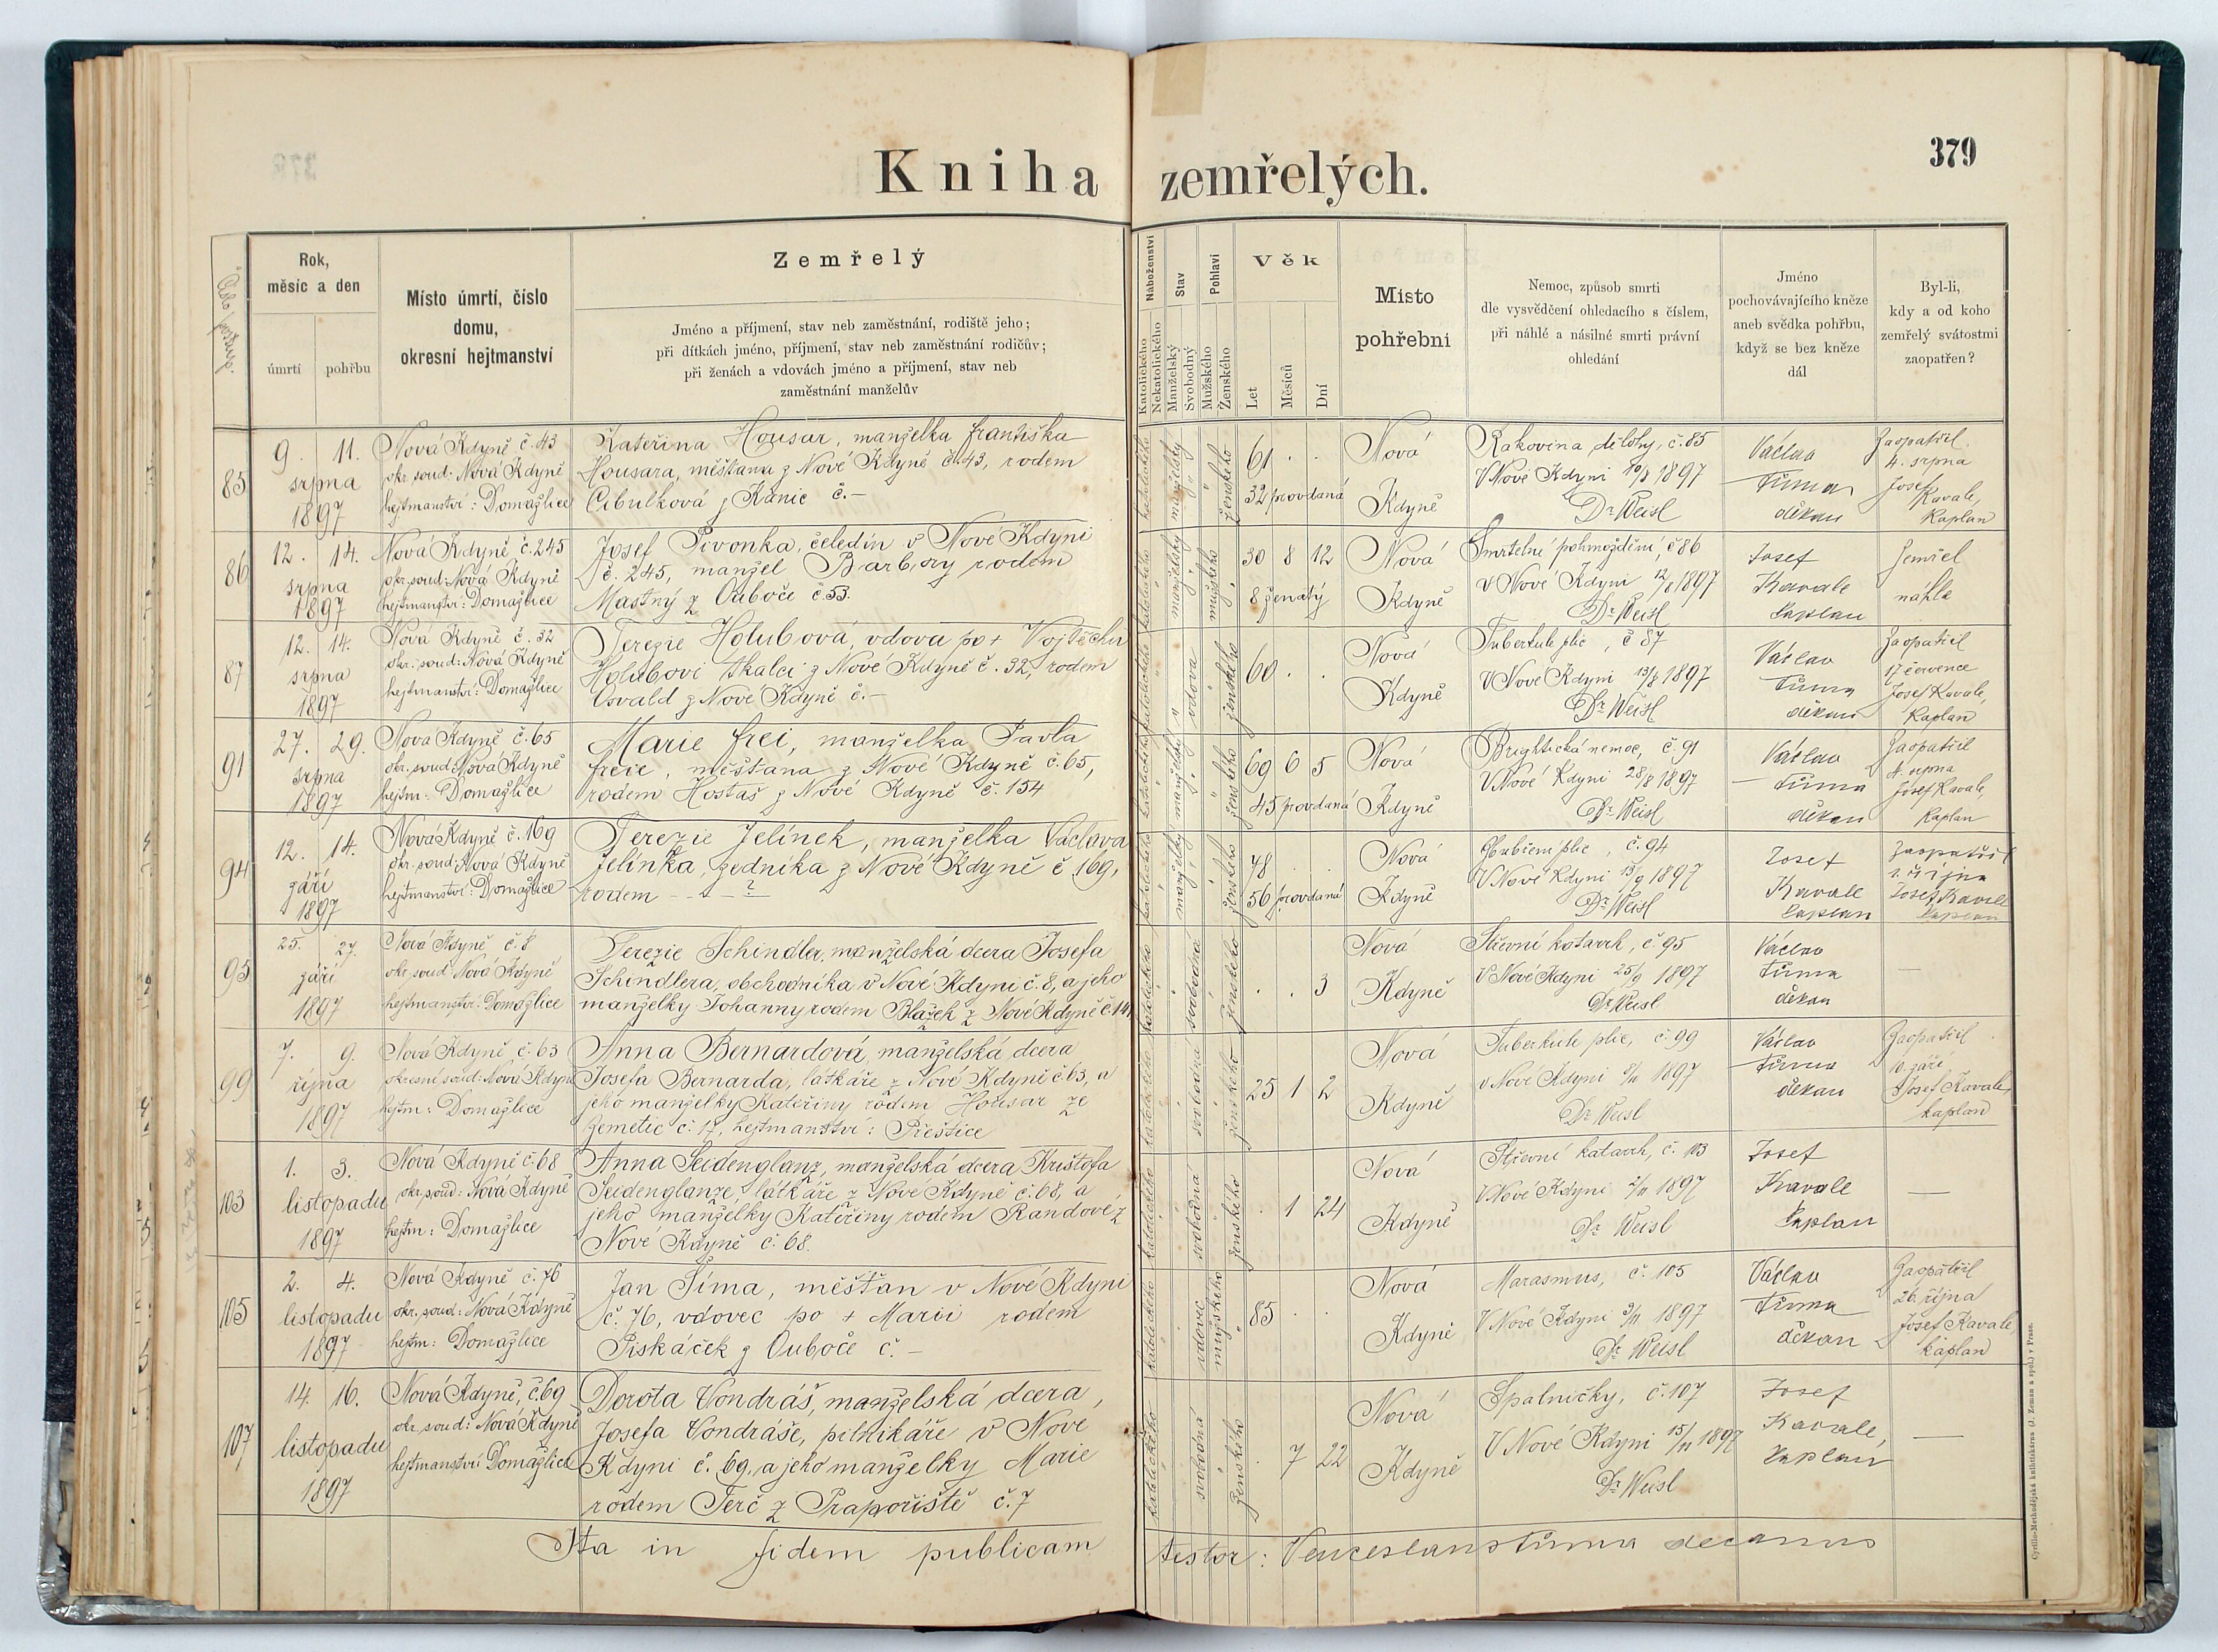 Kniha zemřelých.
379
Číslo postupu.
Rok,
měsíc a den
úmrtí
pohřbu
Místo úmrtí, číslo
domu,
okresní hejtmanství
Zemřelý
Jméno a příjmení, stav neb zaměstnání, rodiště jeho;
při dítkách jméno, příjmení, stav neb zaměstnání rodičův;
při ženách a vdovách jméno a příjmení, stav neb
zaměstnání manželův
Náboženství
Katolického
Nekatolického
Stav
Manželský
Svobodný
Pohlaví
Mužského
Ženského
Věk
Let
Měsíců
Dní
Místo
pohřební
Nemoc, způsob smrti
dle vysvědčení ohledacího s číslem,
při náhlé a násilné smrti právní
ohledání
Jméno
pochovávajícího kněze
aneb svědka pohřbu,
když se bez kněze
dál
Byl-li,
kdy a od koho
zemřelý svátostmi
zaopatřen?
85
9. 11.
srpna
1897
Nová Kdyně č. 43
okr. soud: Nová Kdyně
hejtmanství: Domažlice
Kateřina Housar, manželka Františka
Housara, měšťana z Nové Kdyně č. 43, rodem
Cibulková z Kanic č. –
katolického
manželský
ženského
61 . .
32 provdaná
Nová
Kdyně
Rakovina dělohy, č. 85
V Nové Kdyni 10/8 1897
Dr. Weisl
Václav
Tůma
děkan
Zaopatřil
4. srpna
Josef
Kavale,
kaplan
86
12. 14.
srpna
1897
Nová Kdyně č. 245
okr. soud: Nová Kdyně
hejtmanství: Domažlice
Josef Pivonka, čeledín v Nové Kdyni
č. 245, manžel Barbory rodem
Mastný z Ouboče č. 53.
katolického
manželský
mužského
30 8 12
8 ženatý
Nová
Kdyně
Smrtelné pohmoždění, č. 86
v Nové Kdyni 12/8 1897
Dr. Weisl
Josef
Kavale
kaplan
Zemřel
náhle
87
12. 14.
srpna
1897
Nová Kdyně č. 32
okr. soud: Nová Kdyně
hejtmanství: Domažlice
Terezie Holubová, vdova po + Vojtěchu
Holubovi tkalci z Nové Kdyně č. 32, rodem
Osvald z Nové Kdyně č. –
katolického
vdova
ženského
60 . .
Nová
Kdyně
Tuberkule plic, č. 87
V Nové Kdyni 13/8 1897
Dr. Weisl
Václav
Tůma
děkan
Zaopatřil
17 července
Josef Kavale,
kaplan
91
27. 29.
srpna
1897
Nová Kdyně č. 65
okr. soud: Nová Kdyně
hejtm: Domažlice
Marie Frei, manželka Pavla
Freie, měšťana z Nové Kdyně č. 65,
rodem Hostaš z Nové Kdyně č. 154
katolického
manželský
ženského
69 6 5
45 provdaná
Nová
Kdyně
Brightická nemoc, č. 91
V Nové Kdyni 28/8 1897
Dr. Weisl
Václav
Tůma
děkan
Zaopatřil
srpna
Josef Kavale,
kaplan
94
12. 14.
září
1897
Nová Kdyně č. 169
okr. soud: Nová Kdyně
hejtmanství: Domažlice
Terezie Jelínek, manželka Václava
Jelínka, zedníka z Nové Kdyně č. 169,
rodem – – ? –
katolického
manželský
ženského
78 . .
56 provdaná
Nová
Kdyně
plic, č. 94
V Nové Kdyni 13/9 1897
Dr. Weisl
Josef
Kavale
kaplan
Zaopatřil
1. října
Josef Kavale
kaplan
95
25. 27.
září
1897
Nová Kdyně č. 8
okr. soud: Nová Kdyně
hejtmanství: Domažlice
Terezie Schindler, manželská dcera Josefa
Schindlera, obchodníka v Nové Kdyni č. 8, a jeho
manželky Johanny rodem Blažek z Nové Kdyně č. 141
katolického
svobodná
ženského
. . 3
Nová
Kdyně
Střevní katarrh, č. 95
V Nové Kdyni 25/9 1897
Dr. Weisl
Václav
Tůma
děkan
—
99
7. 9.
října
1897
Nová Kdyně, č. 63
okresní soud: Nová Kdyně
hejtm: Domažlice
Anna Bernardová, manželská dcera
Josefa Bernarda, látkáře z Nové Kdyně č. 63, a
jeho manželky Kateřiny rodem Housar ze
Zemětic č. 17, hejtmanství: Přeštice
katolického
svobodná
ženského
25 1 2
Nová
Kdyně
Tuberkule plic, č. 99
v Nové Kdyni 1897
Dr. Weisl
Václav
Tůma
děkan
Zaopatřil
10. září
Josef Kavale,
kaplan
103
1. 3.
listopadu
1897
Nová Kdyně č. 68
okr. soud: Nová Kdyně
hejtm: Domažlice
Anna Seidenglanz, manželská dcera Krištofa
Seidenglanze, látkáře z Nové Kdyně č. 68, a
jeho manželky Kateřiny rodem Randové z
Nové Kdyně č. 68.
katolického
svobodná
ženského
. 1 24
Nová
Kdyně
Střevní katarrh, č. 103
V Nové Kdyni 2/11 1897
Dr. Weisl
Josef
Kavale
kaplan
—
105
2. 4.
listopadu
1897
Nová Kdyně č. 76
okr. soud: Nová Kdyně
hejtm: Domažlice
Jan Šíma, měšťan v Nové Kdyni
č. 76, vdovec po + Marii rodem
Piskáček z Ouboče č. –
katolického
vdovec
mužského
85 . .
Nová
Kdyně
Marasmus, č. 105
V Nové Kdyni 3/11 1897
Dr. Weisl
Václav
Tůma
děkan
Zaopatřil
26. října
Josef Kavale,
kaplan
107
14. 16.
listopadu
1897
Nová Kdyně, č. 69
okr. soud: Nová Kdyně
hejtmanství Domažlice
Dorota Vondráš, manželská dcera
Josefa Vondráše, pilnikáře v Nové
Kdyni č. 69, a jeho manželky Marie
rodem Terč z Prapořiště č. 7
katolického
svobodná
ženského
. 7 22
Nová
Kdyně
Spalničky, č. 107
V Nové Kdyni 15/11 1897
Dr. Weisl
Josef
Kavale,
kaplan
—
Ita in fidem publicam testor: Venceslaus Tůma decanus
Cyrillo-Methodějská knihtiskárna (J. Zeman a spol.) v Praze.